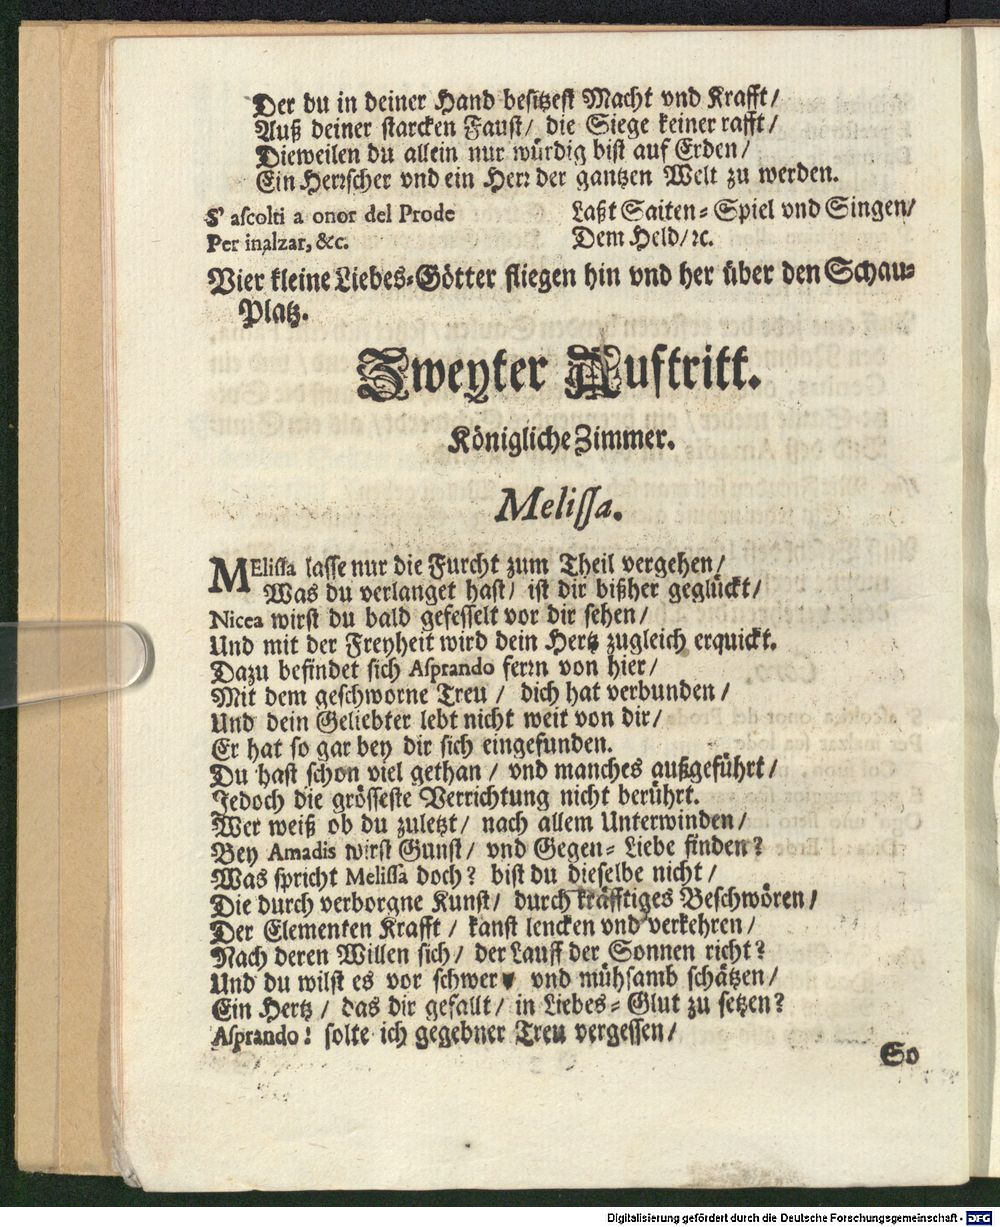 Der du in deiner Hand besitzest Macht vnd Krafft/
Auß deiner starcken Faust/ die Siege keiner rafft/
Dieweilen du allein nur würdig bist auf Erden/
Ein Herrscher vnd ein Herr der gantzen Welt zu werden.
S' ascolti a onor del Prode
Per inalzar, &c.
Laßt Saiten-Spiel vnd Singen/
Dem Held/ ꝛc.
Vier kleine Liebes-Götter fliegen hin vnd her über den Schau-
Platz.
Zweyter Auftritt.
Königliche Zimmer.
Melissa.
MElissa lasse nur die Furcht zum Theil vergehen/
Was du verlanget hast/ ist dir bißher geglückt/
Nicea wirst du bald gefesselt vor dir sehen/
Und mit der Freyheit wird dein Hertz zugleich erquickt.
Dazu befindet sich Asprando ferrn von hier/
Mit dem geschworne Treu / dich hat verbunden /
Und dein Geliebter lebt nicht weit von dir/
Er hat so gar bey dir sich eingefunden.
Du hast schon viel gethan / vnd manches außgeführt/
Jedoch die grösseste Verrichtung nicht berührt.
Wer weiß ob du zuletzt/ nach allem Unterwinden/
Bey Amadis wirst Gunst/ vnd Gegen-Liebe finden?
Was spricht Melissa doch? bist du dieselbe nicht/
Die durch verborgne Kunst/ durch kräfftiges Beschwören/
Der Elementen Krafft / kanst lencken vnd verkehren/
Nach deren Willen sich / der Lauff der Sonnen richt?
Und du wilst es vor schwer vnd mühsamb schätzen/
Ein Hertz / das dir gefallt/ in Liebes-Glut zu setzen?
Asprando! solte ich gegebner Treu vergessen/
So
Digitalisierung gefördert durch die Deutsche Forschungsgemeinschaft - DFG